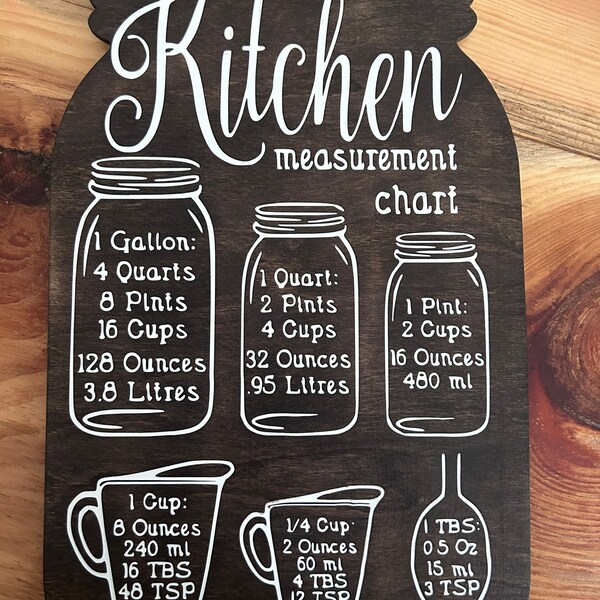 Kitchen
measurement
chart
1 Gallon:
4 Quarts
8 Pints
16 Cups
128 Ounces
3.8 Litres
1 Quart:
2 Pints
4 Cups
32 Ounces
.95 Litres
1 Pint:
2 Cups
16 Ounces
480 ml
1 Cup:
8 Ounces
240 ml
16 TBS
48 TSP
1/4 Cup:
2 Ounces
60 ml
4 TBS
12 TSP
1 TBS:
0.5 Oz
15 ml
3 TSP